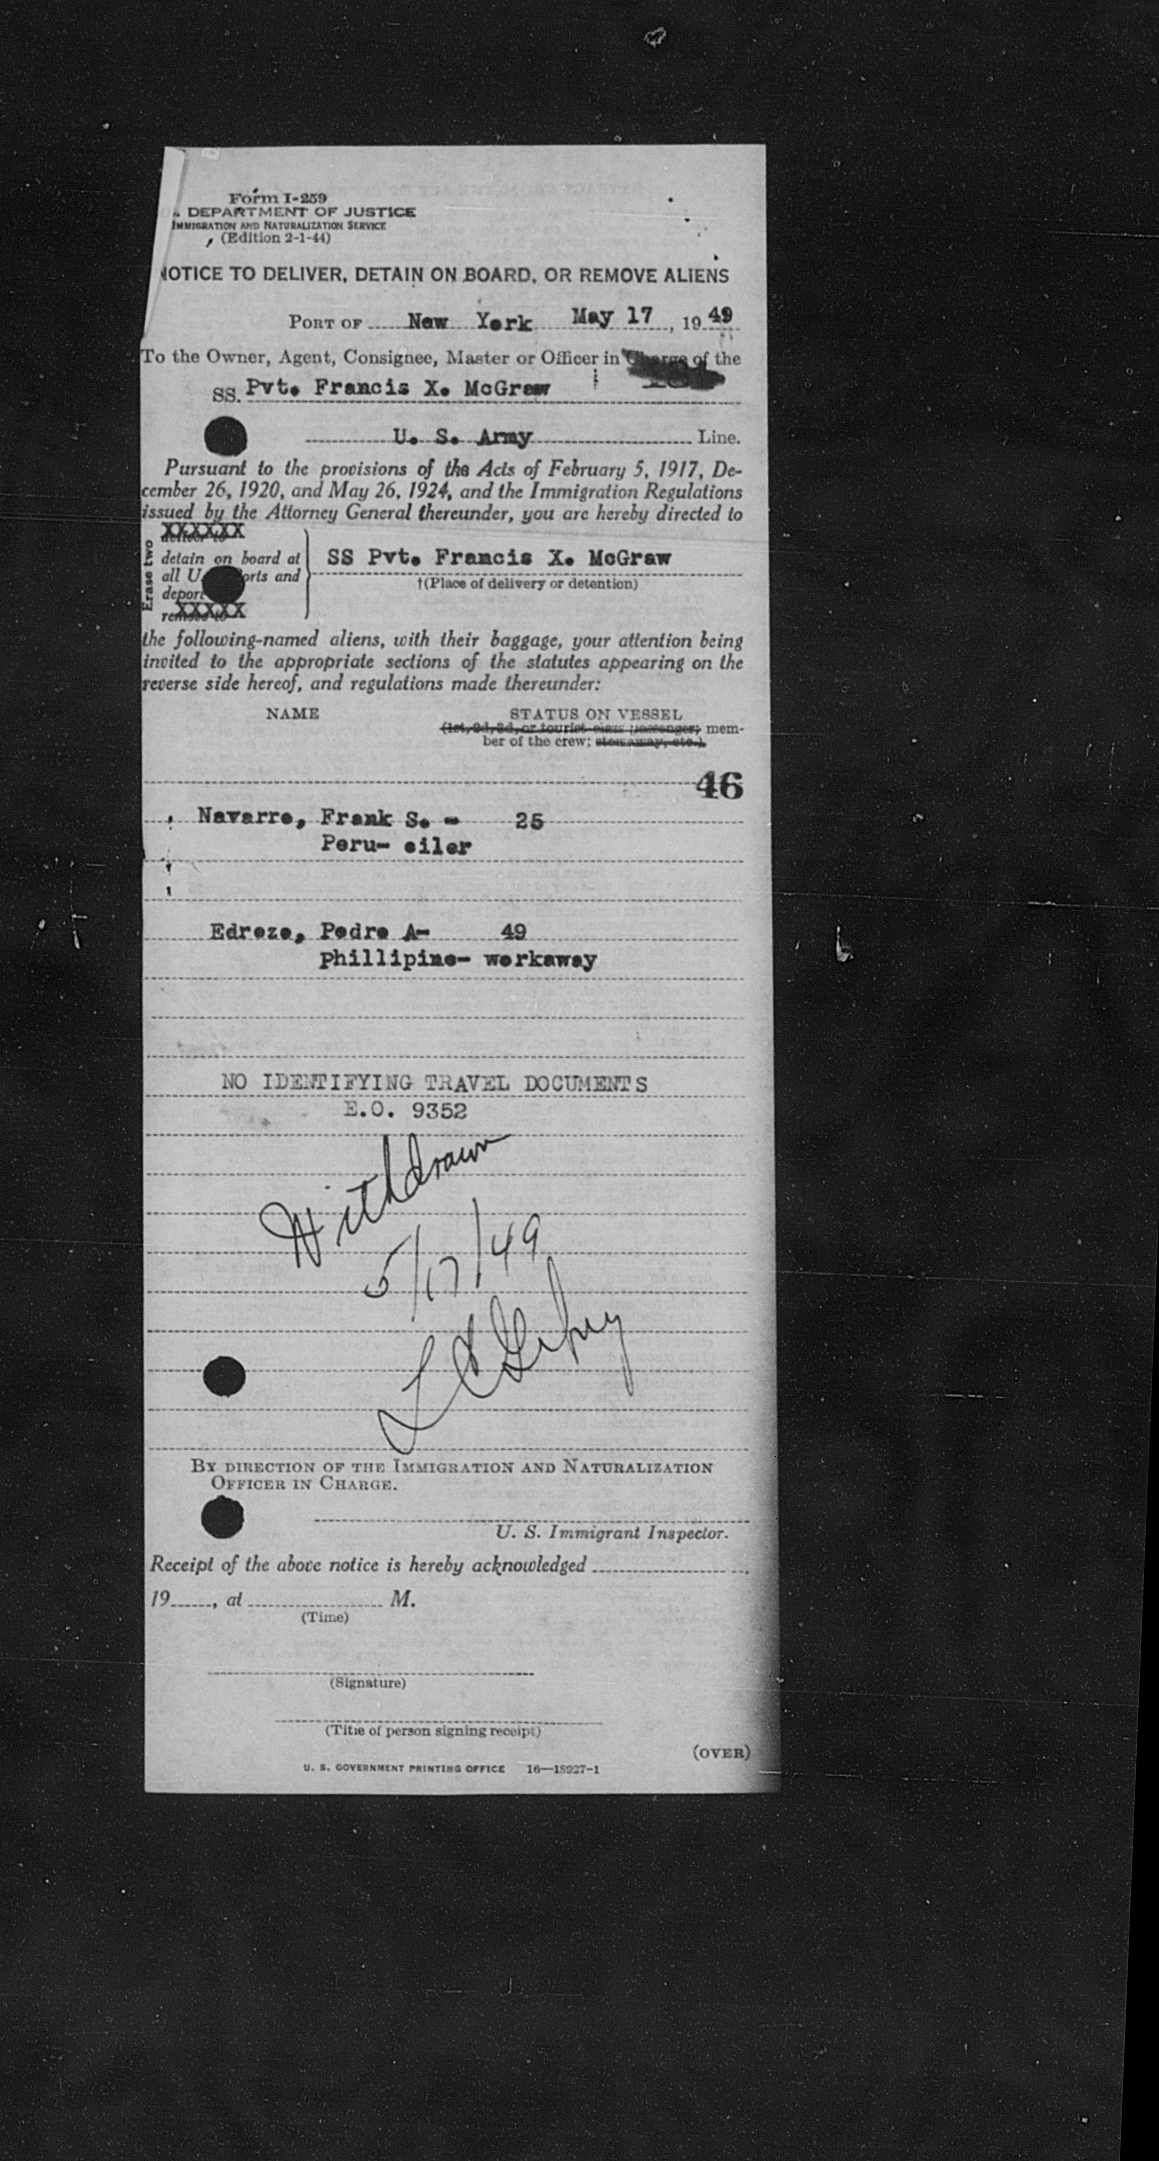 Form I-259
DEPARTMENT OF JUSTICE
IMMIGRATION AND NATURALIZATION SERVICE
(Edition 2-1-44)
NOTICE TO DELIVER, DETAIN ON BOARD, OR REMOVE ALIENS
PORT OF New York May 17, 1949
To the Owner, Agent, Consignee, Master or Officer in Charge of the
SS. Pvt. Francis X. McGraw
U. S. Army Line.
Pursuant to the provisions of the Acts of February 5, 1917, De-
cember 26, 1920, and May 26, 1924, and the Immigration Regulations
issued by the Attorney General thereunder, you are hereby directed to
Erase two
XXXXXX
deliver to
detain on board at
all U. ports and
deport
XXXXX
remove to
SS Pvt. Francis X. McGraw
†(Place of delivery or detention)
the following-named aliens, with their baggage, your attention being
invited to the appropriate sections of the statutes appearing on the
reverse side hereof, and regulations made thereunder:
NAME STATUS ON VESSEL
(1st, 2d, 3d, or tourist class passenger; mem-
ber of the crew; stowaway, etc.).
46
Navarro, Frank S. - 25
Peru- oiler
Edrozo, Pedro A- 49
phillipine- workaway
NO IDENTIFYING TRAVEL DOCUMENTS
E.O. 9352
Withdrawn
5/17/49
BY DIRECTION OF THE IMMIGRATION AND NATURALIZATION
OFFICER IN CHARGE.
U. S. Immigrant Inspector.
Receipt of the above notice is hereby acknowledged
19, at M.
(Time)
(Signature)
(Title of person signing receipt)
(OVER)
U. S. GOVERNMENT PRINTING OFFICE 16—18927-1